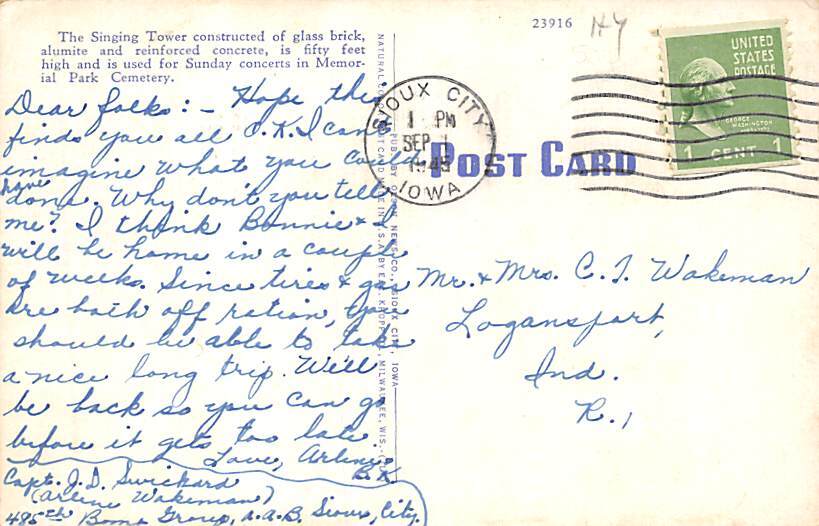 The Singing Tower constructed of glass brick,
alumite and reinforced concrete, is fifty feet
high and is used for Sunday concerts in Memor-
ial Park Cemetery.
Dear folks:- Hope this
finds you all O.K. I can't
imagine what you could
have
done. Why don't you tell
me? I think Bonnie & I
will be home in a couple
of weeks. Since tires & gas
are both off ration, you
should be able to take
a nice long trip. We'll
be back so you can go
before it gets too late.
Love, Arline
B.K.
Capt. J.D. Swickard
(Arline Wakeman)
485th Bomb Group, A.A.B. Sioux City.
PUB. BY NEWS CO., SIOUX CITY, IOWA
NATURAL POST CARD MADE IN U.S.A. BY E. C. KROPP CO., MILWAUKEE, WIS.
23916
SIOUX CITY
1 PM
SEP 1
1945
IOWA
POST CARD
UNITED
STATES
POSTAGE
GEORGE
WASHINGTON
1 CENT 1
Mr. & Mrs. C. T. Wakeman
Logansport,
Ind.
R. 1